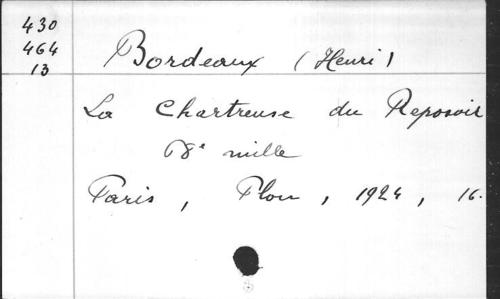 430
464
13
Bordeaux (Henri)
La Chartreuse du Reposoir
68e mille
Paris, Plon, 1924, 16.